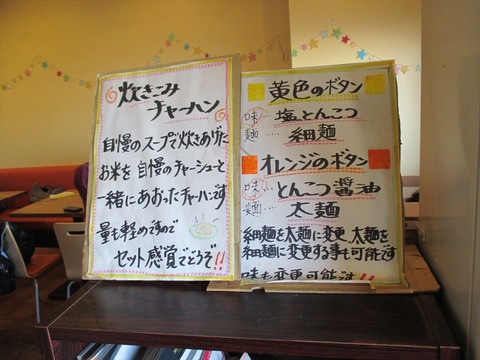 炊きこみ
チャーハン
自慢のスープで炊きあげた
お米を自慢のチャーシューと
一緒にあおったチャーハンです
量も軽めですので
セット感覚でどうぞ!!
黄色のボタン
味…塩とんこつ
麺……細麺
オレンジのボタン
味…とんこつ醤油
麺……太麺
細麺を太麺に変更、太麺を
細麺に変更する事も可能です
味も変更可能です!!